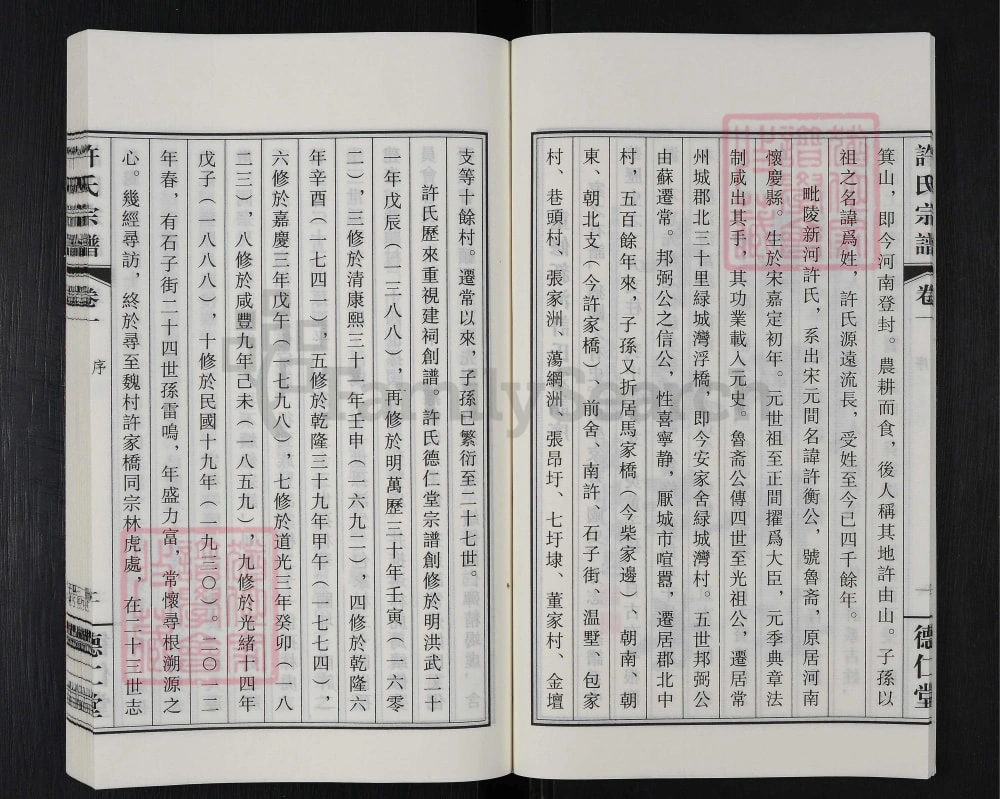 許氏宗譜
卷一
序
一
德仁堂
箕山，即今河南登封。農耕而食，後人稱其地許由山。子孫以
祖之名諱爲姓，許氏源遠流長，受姓至今已四千餘年。
毗陵新河許氏，系出宋元間名諱許衡公，號魯斋，原居河南
懷慶縣。生於宋嘉定初年。元世祖至正間擢爲大臣，元季典章法
制咸出其手，其功業載入元史。魯斋公傳四世至光祖公，遷居常
州城郡北三十里緑城灣浮橋，即今安家舍緑城灣村。五世邦弼公
由蘇遷常。邦弼公之信公，性喜寧静，厭城市喧囂，遷居郡北中
村，五百餘年來，子孫又折居馬家橋（今柴家邊）、朝南、朝
東、朝北支（今許家橋）、前舍、南許、石子街、温墅、包家
村、巷頭村、張家洲、蕩網洲、張昂圩、七圩埭、董家村、金壇
支等十餘村。遷常以來，子孫已繁衍至二十七世。
許氏歷來重視建祠創譜。許氏德仁堂宗譜創修於明洪武二十
一年戊辰（一三八八），再修於明萬歷三十年壬寅（一六零
二），三修於清康熙三十一年壬申（一六九二），四修於乾隆六
年辛酉（一七四一），五修於乾隆三十九年甲午（一七七四），
六修於嘉慶三年戊午（一七九八），七修於道光三年癸卯（一八
二三），八修於咸豐九年己未（一八五九），九修於光緒十四年
戊子（一八八八），十修於民國十九年（一九三〇）。二〇一二
年春，有石子街二十四世孫雷鳴，年盛力富，常懷尋根溯源之
心。幾經尋訪，終於尋至魏村許家橋同宗林虎處，在二十三世志
許氏宗譜
卷一
序
二
德仁堂
FamilySearch